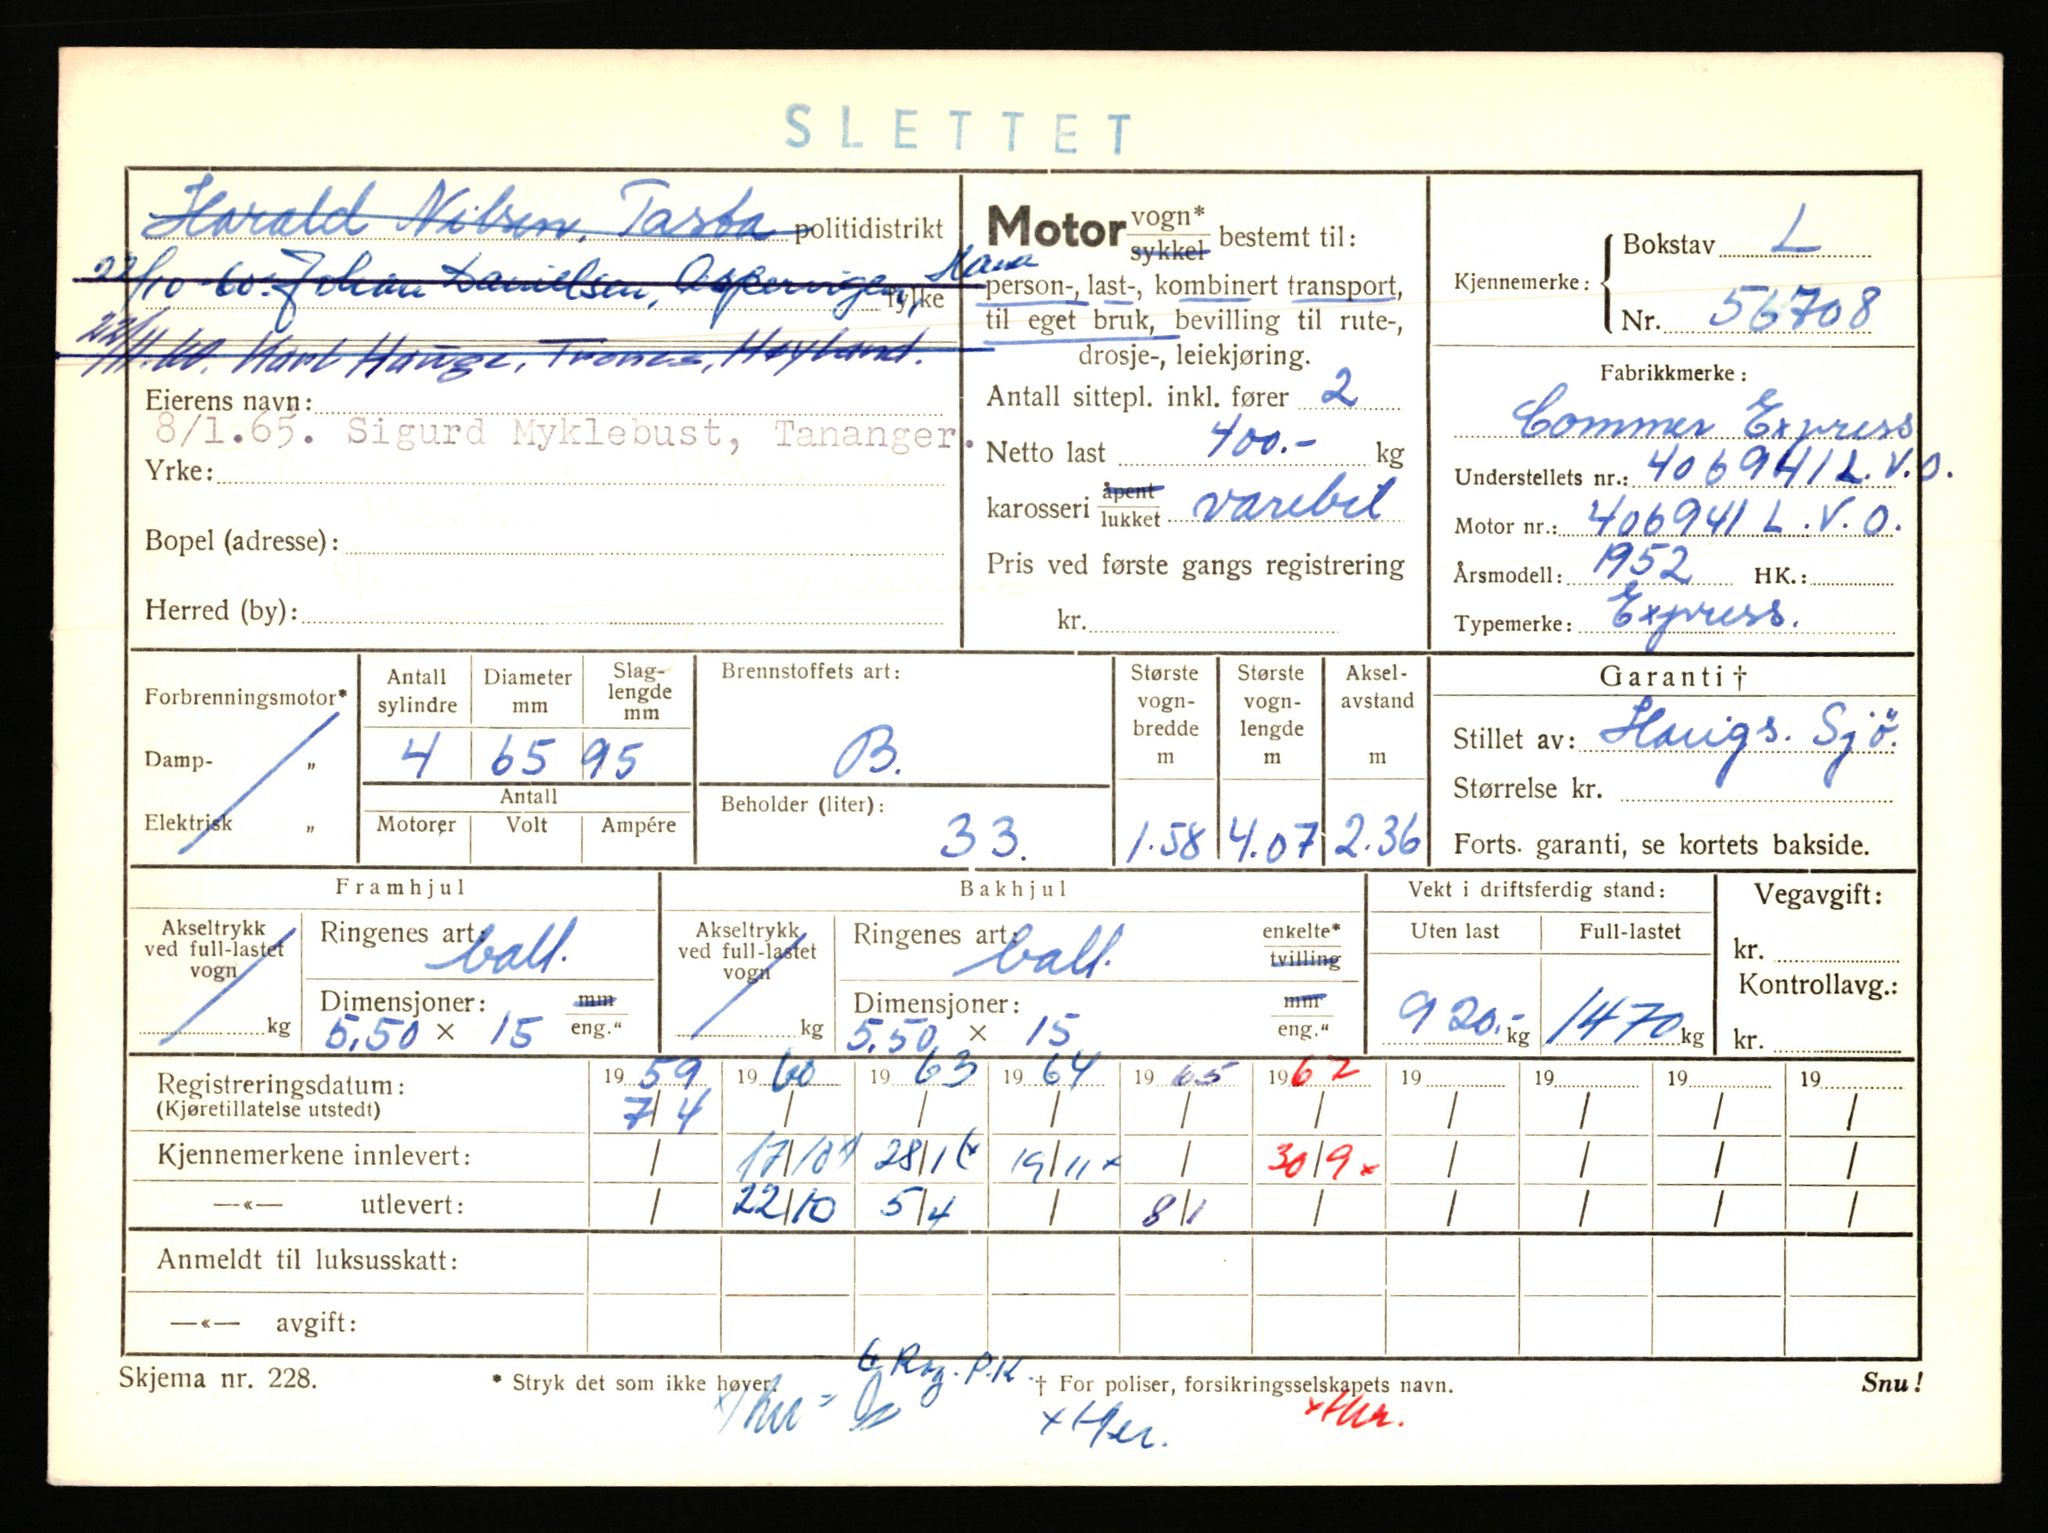 SLETTET
Harald Nilsen, Tasta politidistrikt
22/10-60. Johan Danielsen, Hana fylke
22/11.60. Karl Hauge, Trones, Høyland.
Eierens navn:
8/1.65. Sigurd Myklebust, Tananger.
Yrke:
Bopel (adresse):
Herred (by):
Motor vogn* sykkel bestemt til:
person-, last-, kombinert transport,
til eget bruk, bevilling til rute-,
drosje-, leiekjøring.
Antall sittepl. inkl. fører 2
Netto last 400.- kg
karosseri åpent lukket varebil
Pris ved første gangs registrering
kr.
Kjennemerke: Bokstav L
Nr. 56708
Fabrikkmerke:
Commer Express
Understellets nr.: 406941 L.V.O.
Motor nr.: 406941 L.V.O.
Årsmodell: 1952 HK.:
Typemerke: Express.
Forbrenningsmotor*
Damp- „
Elektrisk „
Antall sylindre 4
Diameter mm 65
Slag-lengde mm 95
Antall
Motorer Volt Ampére
Brennstoffets art:
B.
Beholder (liter):
33.
Største vogn-bredde m 1.58
Største vogn-lengde m 4.07
Aksel-avstand m 2.36
Garanti †
Stillet av: Haugs. Sjö.
Størrelse kr.
Forts. garanti, se kortets bakside.
Framhjul
Akseltrykk ved full-lastet vogn kg
Ringenes art: ball.
Dimensjoner: mm
5,50 × 15 eng."
Bakhjul
Akseltrykk ved full-lastet vogn kg
Ringenes art: ball. enkelte* tvilling
Dimensjoner: mm
5,50 × 15 eng."
Vekt i driftsferdig stand:
Uten last Full-lastet
920.- kg 1470 kg
Vegavgift:
kr.
Kontrollavg.:
kr.
Registreringsdatum: 1959 1960 1963 1964 1965 1962 19 19 19 19
(Kjøretillatelse utstedt) 7/4 / / / / / / / / /
Kjennemerkene innlevert: / 17/10 x 28/1 19/11 x / 30/9 x / / / /
—«— utlevert: / 22/10 5/4 / 8/1 / / / / /
Anmeldt til luksusskatt:
—«— avgift:
Rog. P.K.
Skjema nr. 228.
* Stryk det som ikke høver.
† For poliser, forsikringsselskapets navn.
Snu!